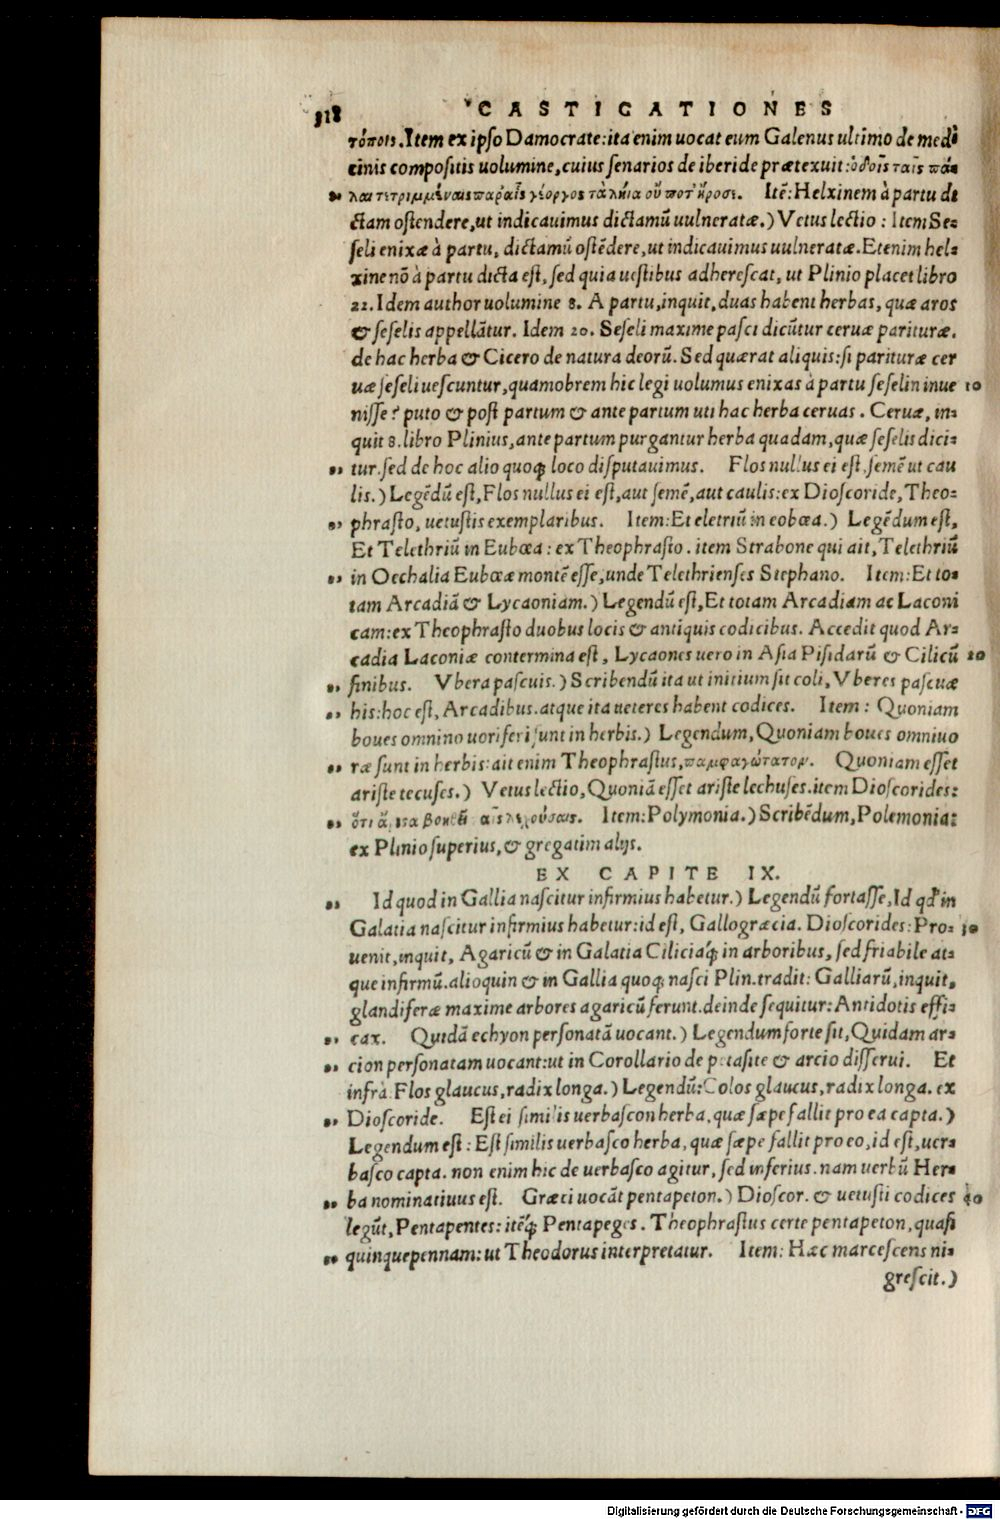 318 CASTIGATIONES
τόποις. Item ex ipso Damocrate: ita enim uocat eum Galenus ultimo de medi
cinis compositis uolumine, cuius senarios de iberide prætexuit: ὁδοῖς ταῖς πά-
” οὔποτ' Itē: Helxinem à partu di
ctam ostendere, ut indicauimus dictamū uulneratæ.) Vetus lectio: Item Se-
seli enixæ à partu, dictamū ostēdere, ut indicauimus uulneratæ. Etenim hel-
xine nō à partu dicta est, sed quia uestibus adherescat, ut Plinio placet libro
22. Idem author uolumine 8. A partu, inquit, duas habent herbas, quæ aros
& seselis appellātur. Idem 20. Seseli maxime pasci dicūtur ceruæ parituræ.
de hac herba & Cicero de natura deorū. Sed quærat aliquis: si parituræ cer
uæ seseli uescuntur, quamobrem hic legi uolumus enixas à partu seselin inue 10
nisse? puto & post partum & ante partum uti hac herba ceruas. Ceruæ, in-
quit 8. libro Plinius, ante partum purgantur herba quadam, quæ seselis dici-
” tur. sed de hoc alio quoq; loco disputauimus. Flos nullus ei est, semē ut cau
lis.) Legēdū est, Flos nullus ei est, aut semē, aut caulis: ex Dioscoride, Theo-
” phrasto, uetustis exemplaribus. Item: Et eletriū in eobœa.) Legēdum est,
Et Telethriū in Eubœa: ex Theophrasto. item Strabone qui ait, Telethriū
” in Oechalia Eubœæ montē esse, unde Telethrienses Stephano. Item: Et to-
tam Arcadiā & Lycaoniam.) Legendū est, Et totam Arcadiam ac Laconi
cam: ex Theophrasto duobus locis & antiquis codicibus. Accedit quod Ar-
cadia Laconiæ contermina est, Lycaones uero in Asia Pisidarū & Cilicū 20
” finibus. Vbera pascuis.) Scribendū ita ut initium sit coli, Vberes pascuæ
” his: hoc est, Arcadibus. atque ita ueteres habent codices. Item: Quoniam
boues omnino uoriferi sunt in herbis.) Legendum, Quoniam boues omniuo
” ræ sunt in herbis: ait enim Theophrastus, παμφαγώτατον. Quoniam esset
ariste tecuses.) Vetus lectio, Quoniā esset ariste lechuses. item Dioscorides:
” ὅτι Item: Polymonia.) Scribēdum, Polemonia:
ex Plinio superius, & gregatim alijs.
EX CAPITE IX.
” Id quod in Gallia nascitur infirmius habetur.) Legendū fortasse, Id qd' in
Galatia nascitur infirmius habetur: id est, Gallogræcia. Dioscorides: Pro- 30
uenit, inquit, Agaricū & in Galatia Ciliciaq́; in arboribus, sed friabile at-
que infirmū. alioquin & in Gallia quoq; nasci Plin. tradit: Galliarū, inquit,
glandiferæ maxime arbores agaricū ferunt. deinde sequitur: Antidotis effi-
” cax. Quidā echyon personatā uocant.) Legendum forte sit, Quidam ar-
” cion personatam uocant: ut in Corollario de petasite & arcio disserui. Et
infrà: Flos glaucus, radix longa.) Legendū: Colos glaucus, radix longa. ex
” Dioscoride. Est ei similis uerbascon herba, quæ sæpe fallit pro ea capta.)
Legendum est: Est similis uerbasco herba, quæ sæpe fallit pro eo, id est, uer-
basco capta. non enim hic de uerbasco agitur, sed inferius. nam uerbū Her-
” ba nominatiuus est. Græci uocāt pentapeton.) Dioscor. & uetusti codices 40
legūt, Pentapentes: itēq́; Pentapeges. Theophrastus certe pentapeton, quasi
” quinquepennam: ut Theodorus interpretatur. Item: Hæc marcescens ni-
grescit.)
Digitalisierung gefördert durch die Deutsche Forschungsgemeinschaft - DFG